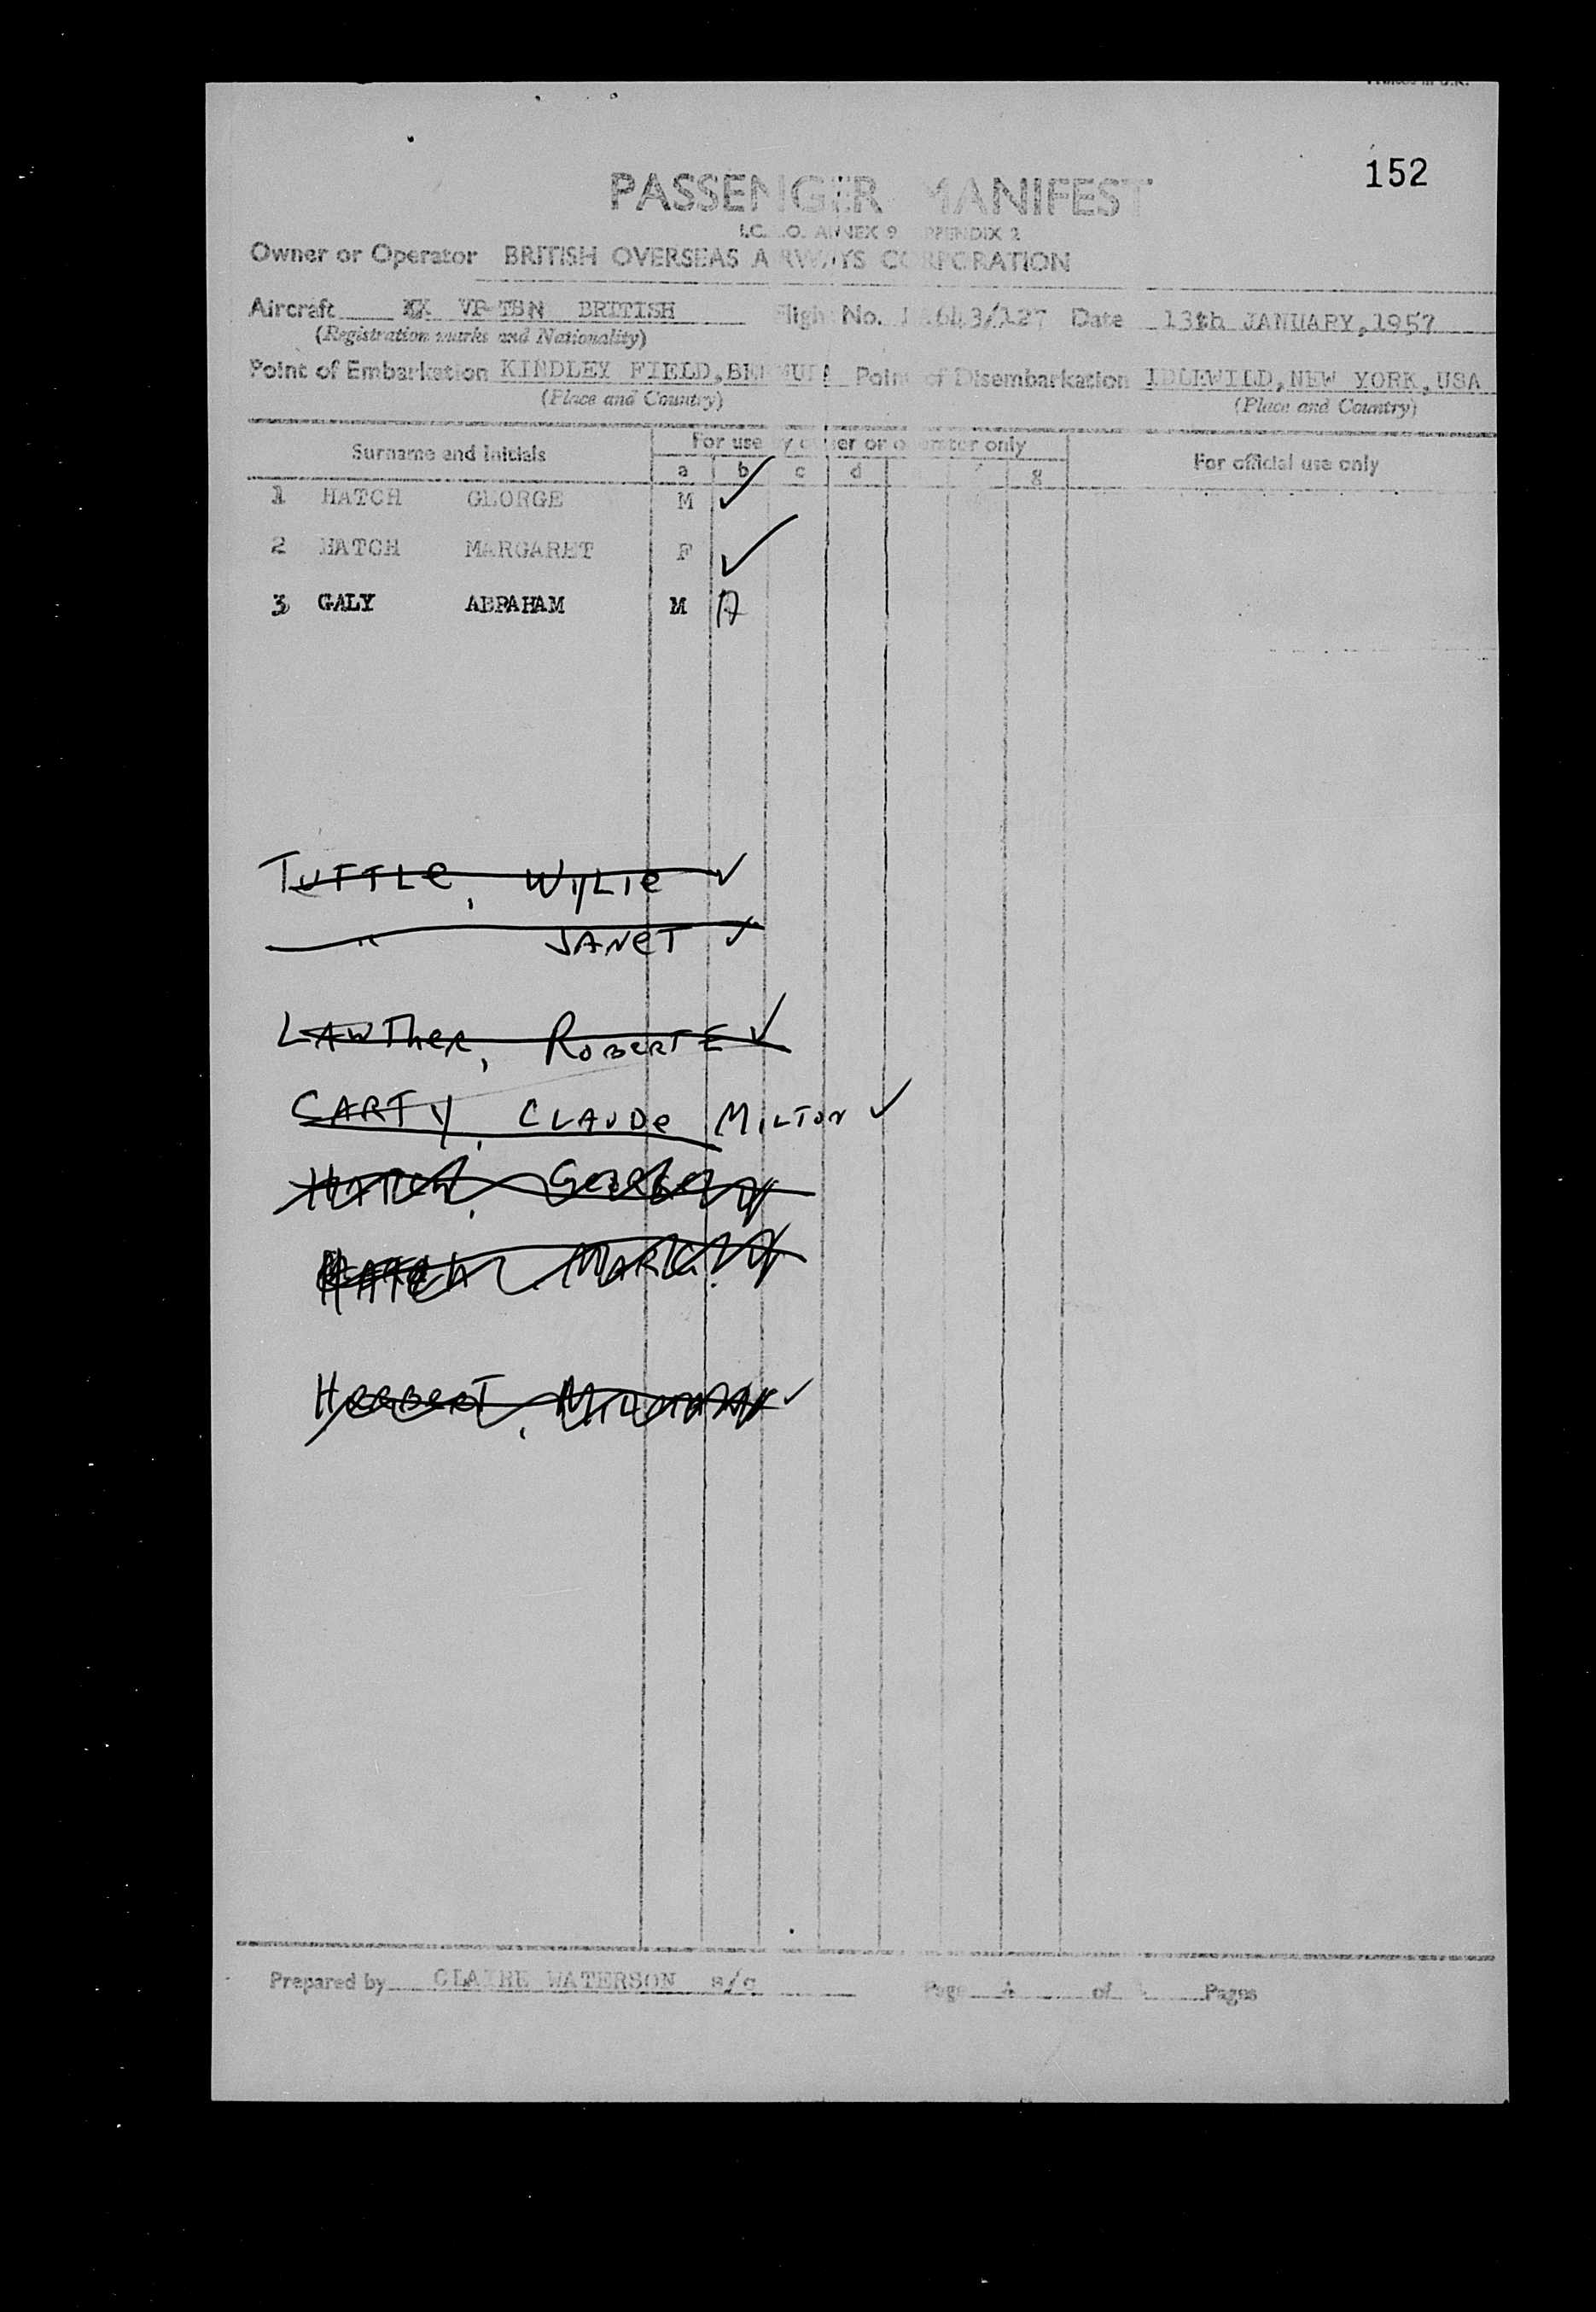 152
PASSENGER MANIFEST
ANNEX 9 APPENDIX 2
Owner or Operator BRITISH OVERSEAS AIRWAYS CORPORATION
Aircraft XX VR-TBN BRITISH Flight No. Date 13th JANUARY, 1957
(Registration marks and Nationality)
Point of Embarkation KINDLEY FIELD, BERMUDA Point of Disembarkation IDLEWILD, NEW YORK, USA
(Place and Country) (Place and Country)
Surname and Initials For use by owner or operator only For official use only
a b c d g
1 HATCH GEORGE M ✓
2 HATCH MARGARET F ✓
3 GALY ABRAHAM M A
TUTTLE, WYLIE ✓
" JANET ✓
LAWTHER, ROBERT E ✓
CARTY, CLAUDE MILTON ✓
HATCH, GEORGE ✓
HATCH MARG. ✓
HERBERT, ✓
Prepared by CLAIRE WATERSON s/g Page of Pages